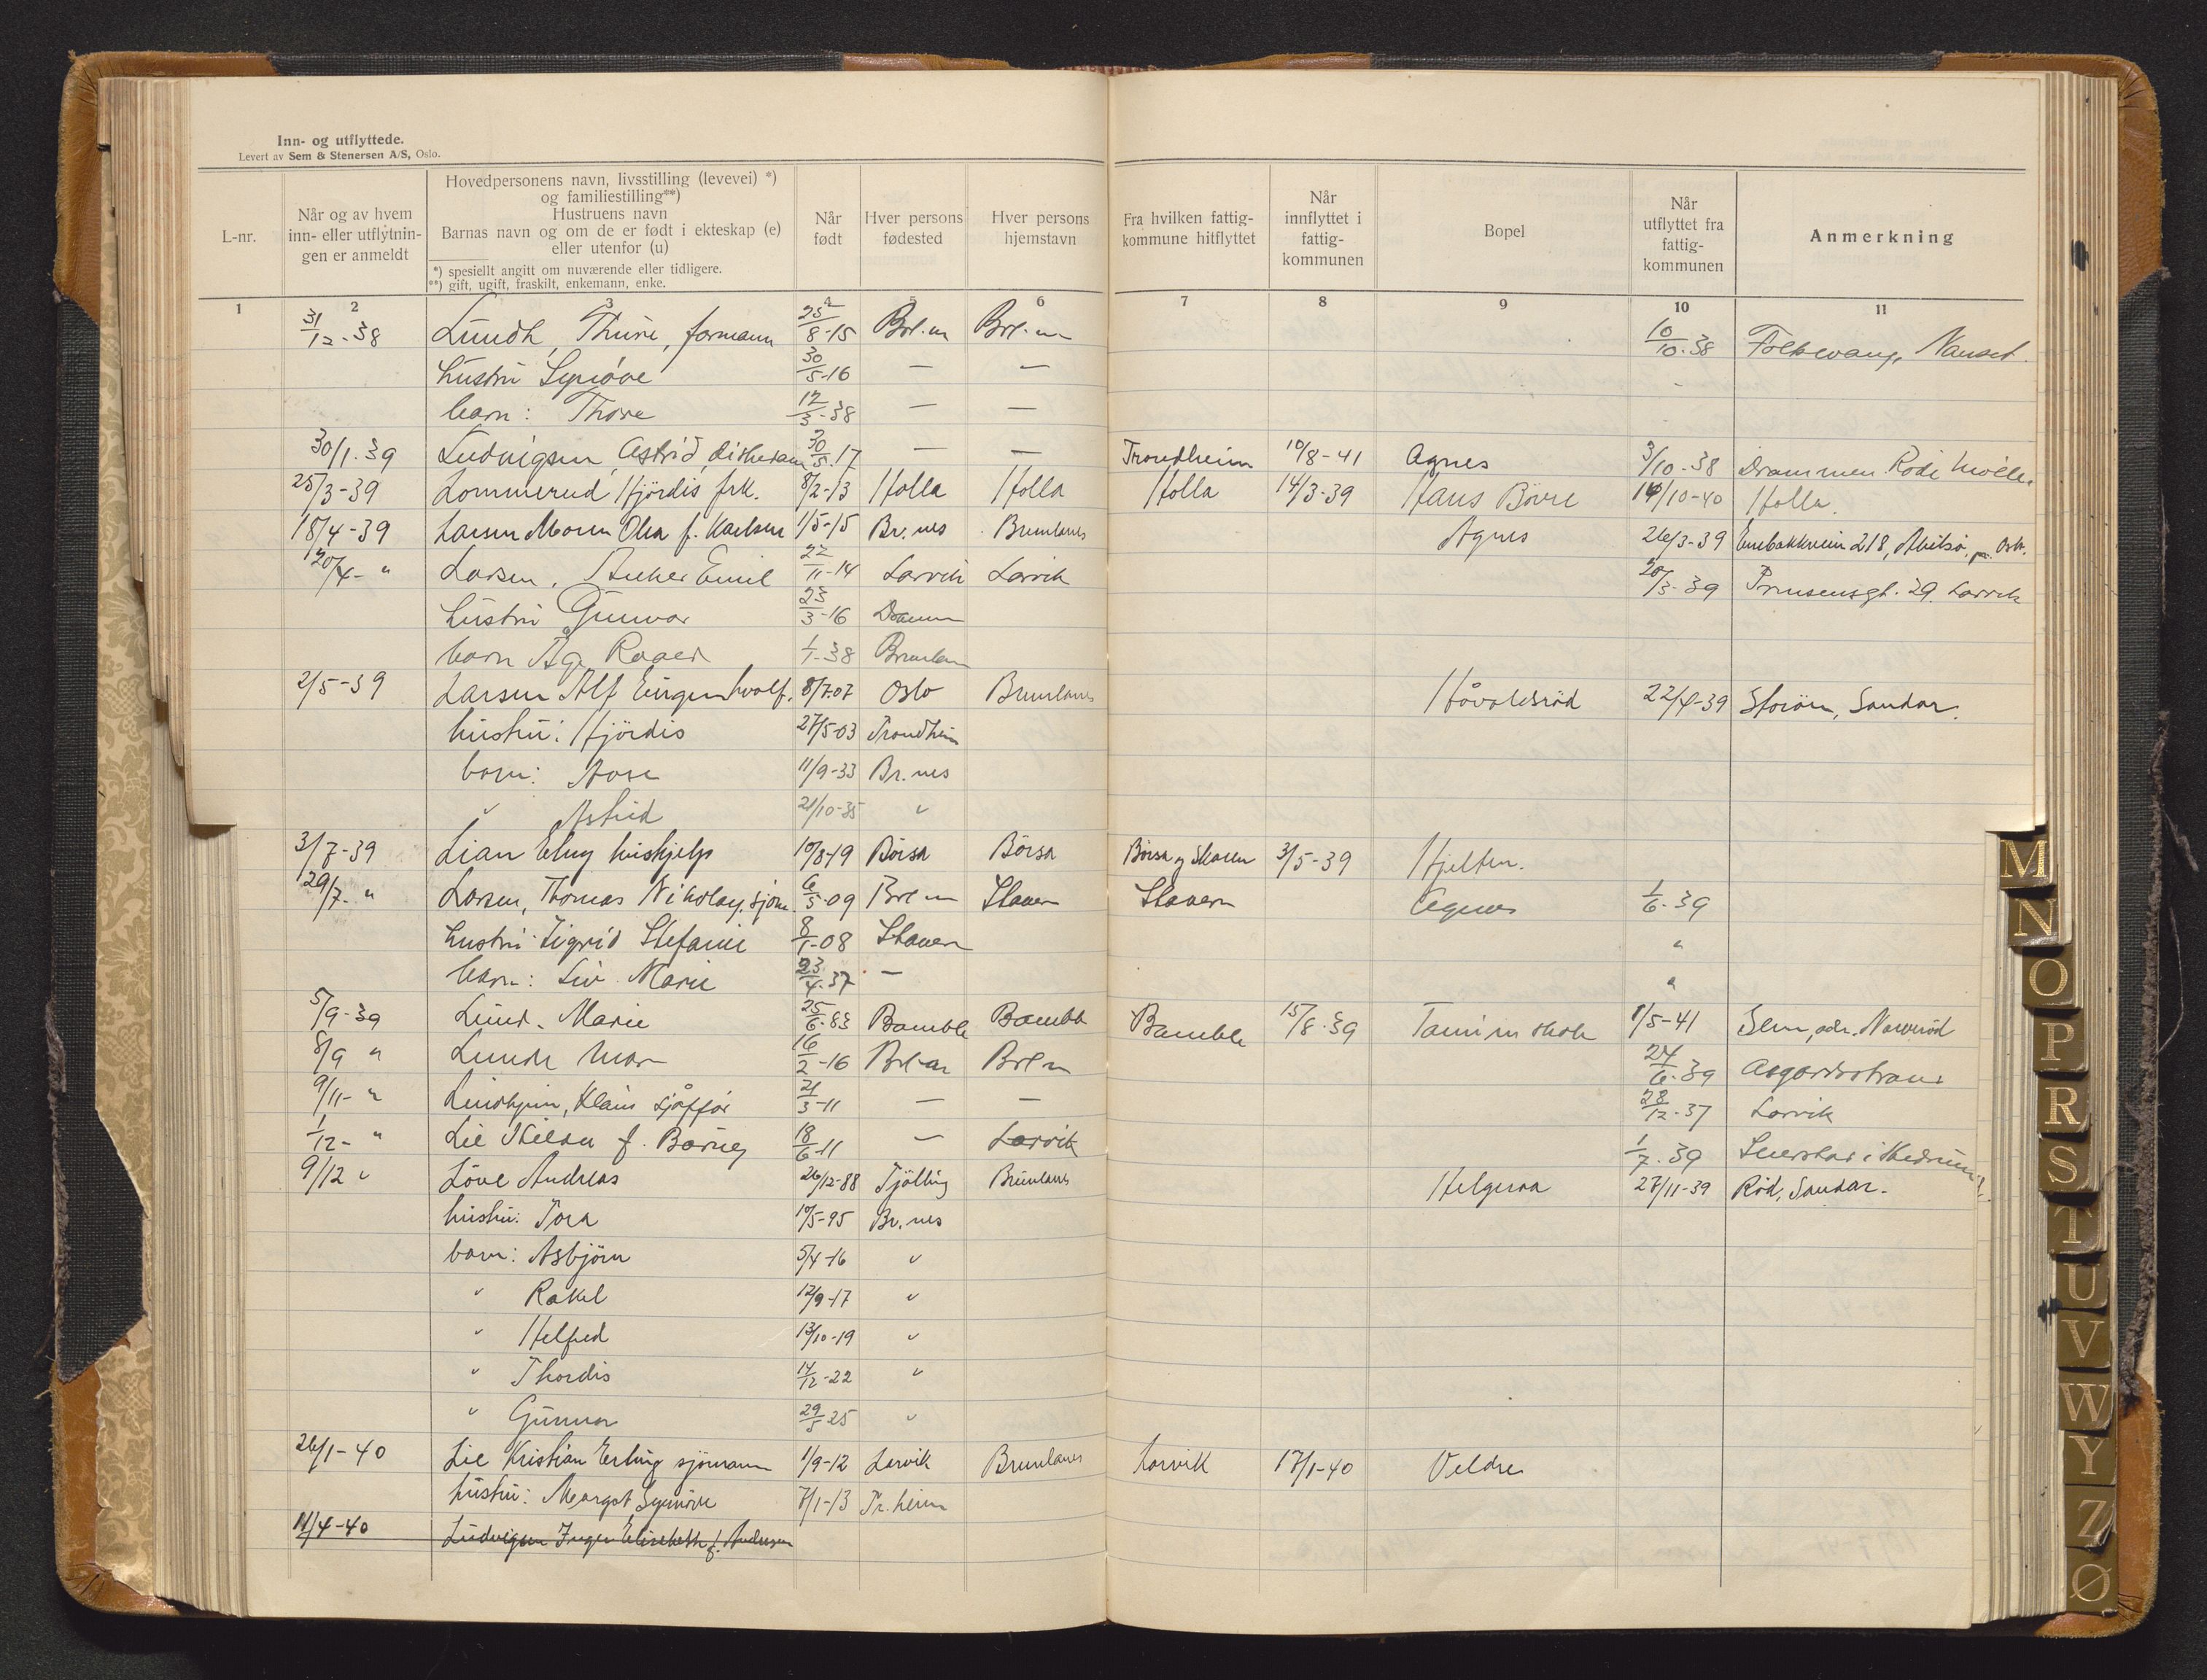 Inn- og utflyttede.
Levert av Sem & Stenersen A/S, Oslo.
L-nr.
Når og av hvem inn- eller utflytnin- gen er anmeldt
Hovedpersonens navn, livsstilling (levevei) *)
og familiestilling**)
Hustruens navn
Barnas navn og om de er født i ekteskap (e)
eller utenfor (u)
*) spesiellt angitt om nuværende eller tidligere.
**) gift, ugift, fraskilt, enkemann, enke.
Når født
Hver persons fødested
Hver persons hjemstavn
Fra hvilken fattig- kommune hitflyttet
Når innflyttet i fattig- kommunen
Bopel
Når utflyttet fra fattig- kommunen
Anmerkning
1 2 3 4 5 6 7 8 9 10 11
31/12-38 Lundh, Thure, formann 25/8-15 10/10-38 Nanset
hustru Synøve 30/5-16 — —
barn: Thore 12/3-38 — —
30/1-39 Ludvigsen, Astrid 30/5-17 — — Trondheim 10/8-41 Agnes 3/10-38 Drammen
25/3-39 Lommerud Hjördis frk. 8/2-13 Holla Holla Holla 14/3-39 Hans Bövre 14/10-40 Holla.
18/4-39 Larsen f. Karlsen 1/5-15 Br.nes Brunlanes Agnes 26/3-39
20/4- " Larsen, Emil 22/11-14 Larvik Larvik 20/3-39 Prinsensgt. 29. Larvik
hustru Gunvor 23/3-16
barn Åge Roger 1/1-38
2/5-39 Larsen Alf 8/7-07 Oslo Brunlanes Håvaldsröd 22/4-39 Sandar.
hustru: Hjördis 27/5-03 Trondheim
barn: Aase 11/9-33 Br.nes
" Astrid 21/10-35 "
3/7-39 Lian Elny hushjelp 10/8-19 Börsa Börsa Börsa og Skaun 3/5-39
29/7- " Larsen, Thomas Nikolay, sjøm. 6/5-09 Stavern Stavern Agnes 1/6-39
hustru Sigrid Stefanie 8/1-08 Stavern "
barn: Liv Marie 23/4-37 — "
5/9-39 Lund, Marie 25/6-83 Bamble Bamble Bamble 15/8-39 1/5-41 Sem
8/9 " Lunde 16/2-16 24/6-39 Aasgardstrand
9/11- " sjåffør 21/3-11 — — 28/12-37 Larvik
1/12- " Lie f. Børnes 18/6-11 — Larvik 1/7-39
9/12 " Löve Andreas 26/12-88 Tjölling Brunlanes Helgeroa 27/11-39 Röd, Sandar.
hustru: Tora 10/5-95 Br.nes
barn: Asbjörn 5/4-16 "
" Rakel 12/9-17 "
" Helfred 13/10-19 "
" Thordis 14/12-22 "
" Gunnar 29/5-25 "
26/1-40 Lie Kristian Erling sjömann 1/9-12 Larvik Brunlanes Larvik 17/1-40 Veldre
hustru: Margot Synnöve 7/1-13 Tr.heim
11/4-40 Ludvigsen Inger Elisabeth f. Andersen
M
N
O
P
R
S
T
U
V
W
Y
Z
Ø